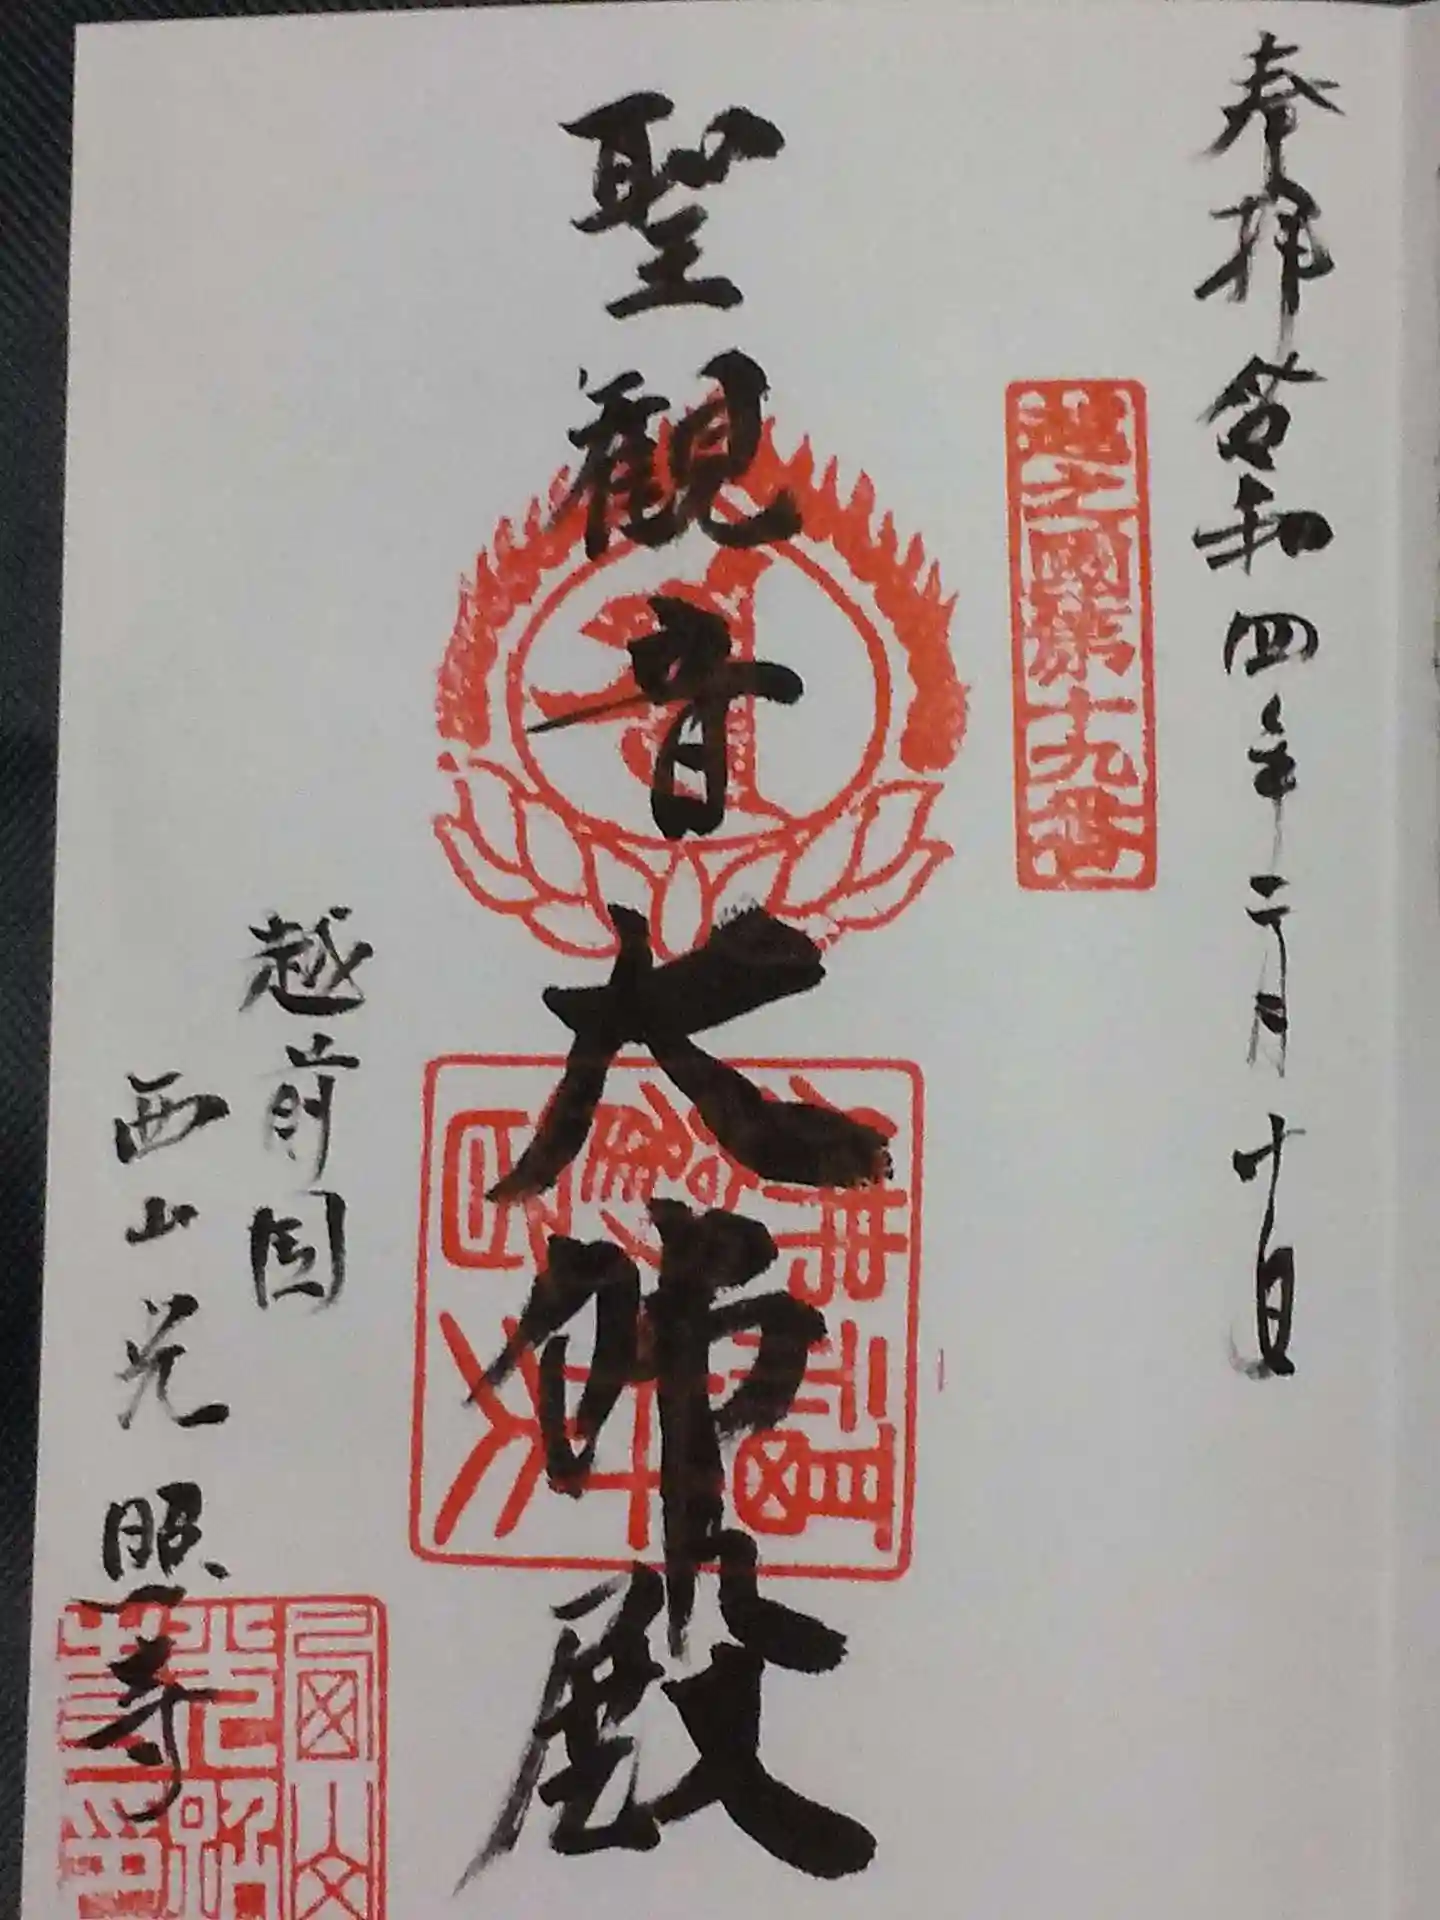 奉拝 令和四年二月十日
越之國第十九番
聖觀音大佛殿
越前国
西山光照寺
西山光照寺印